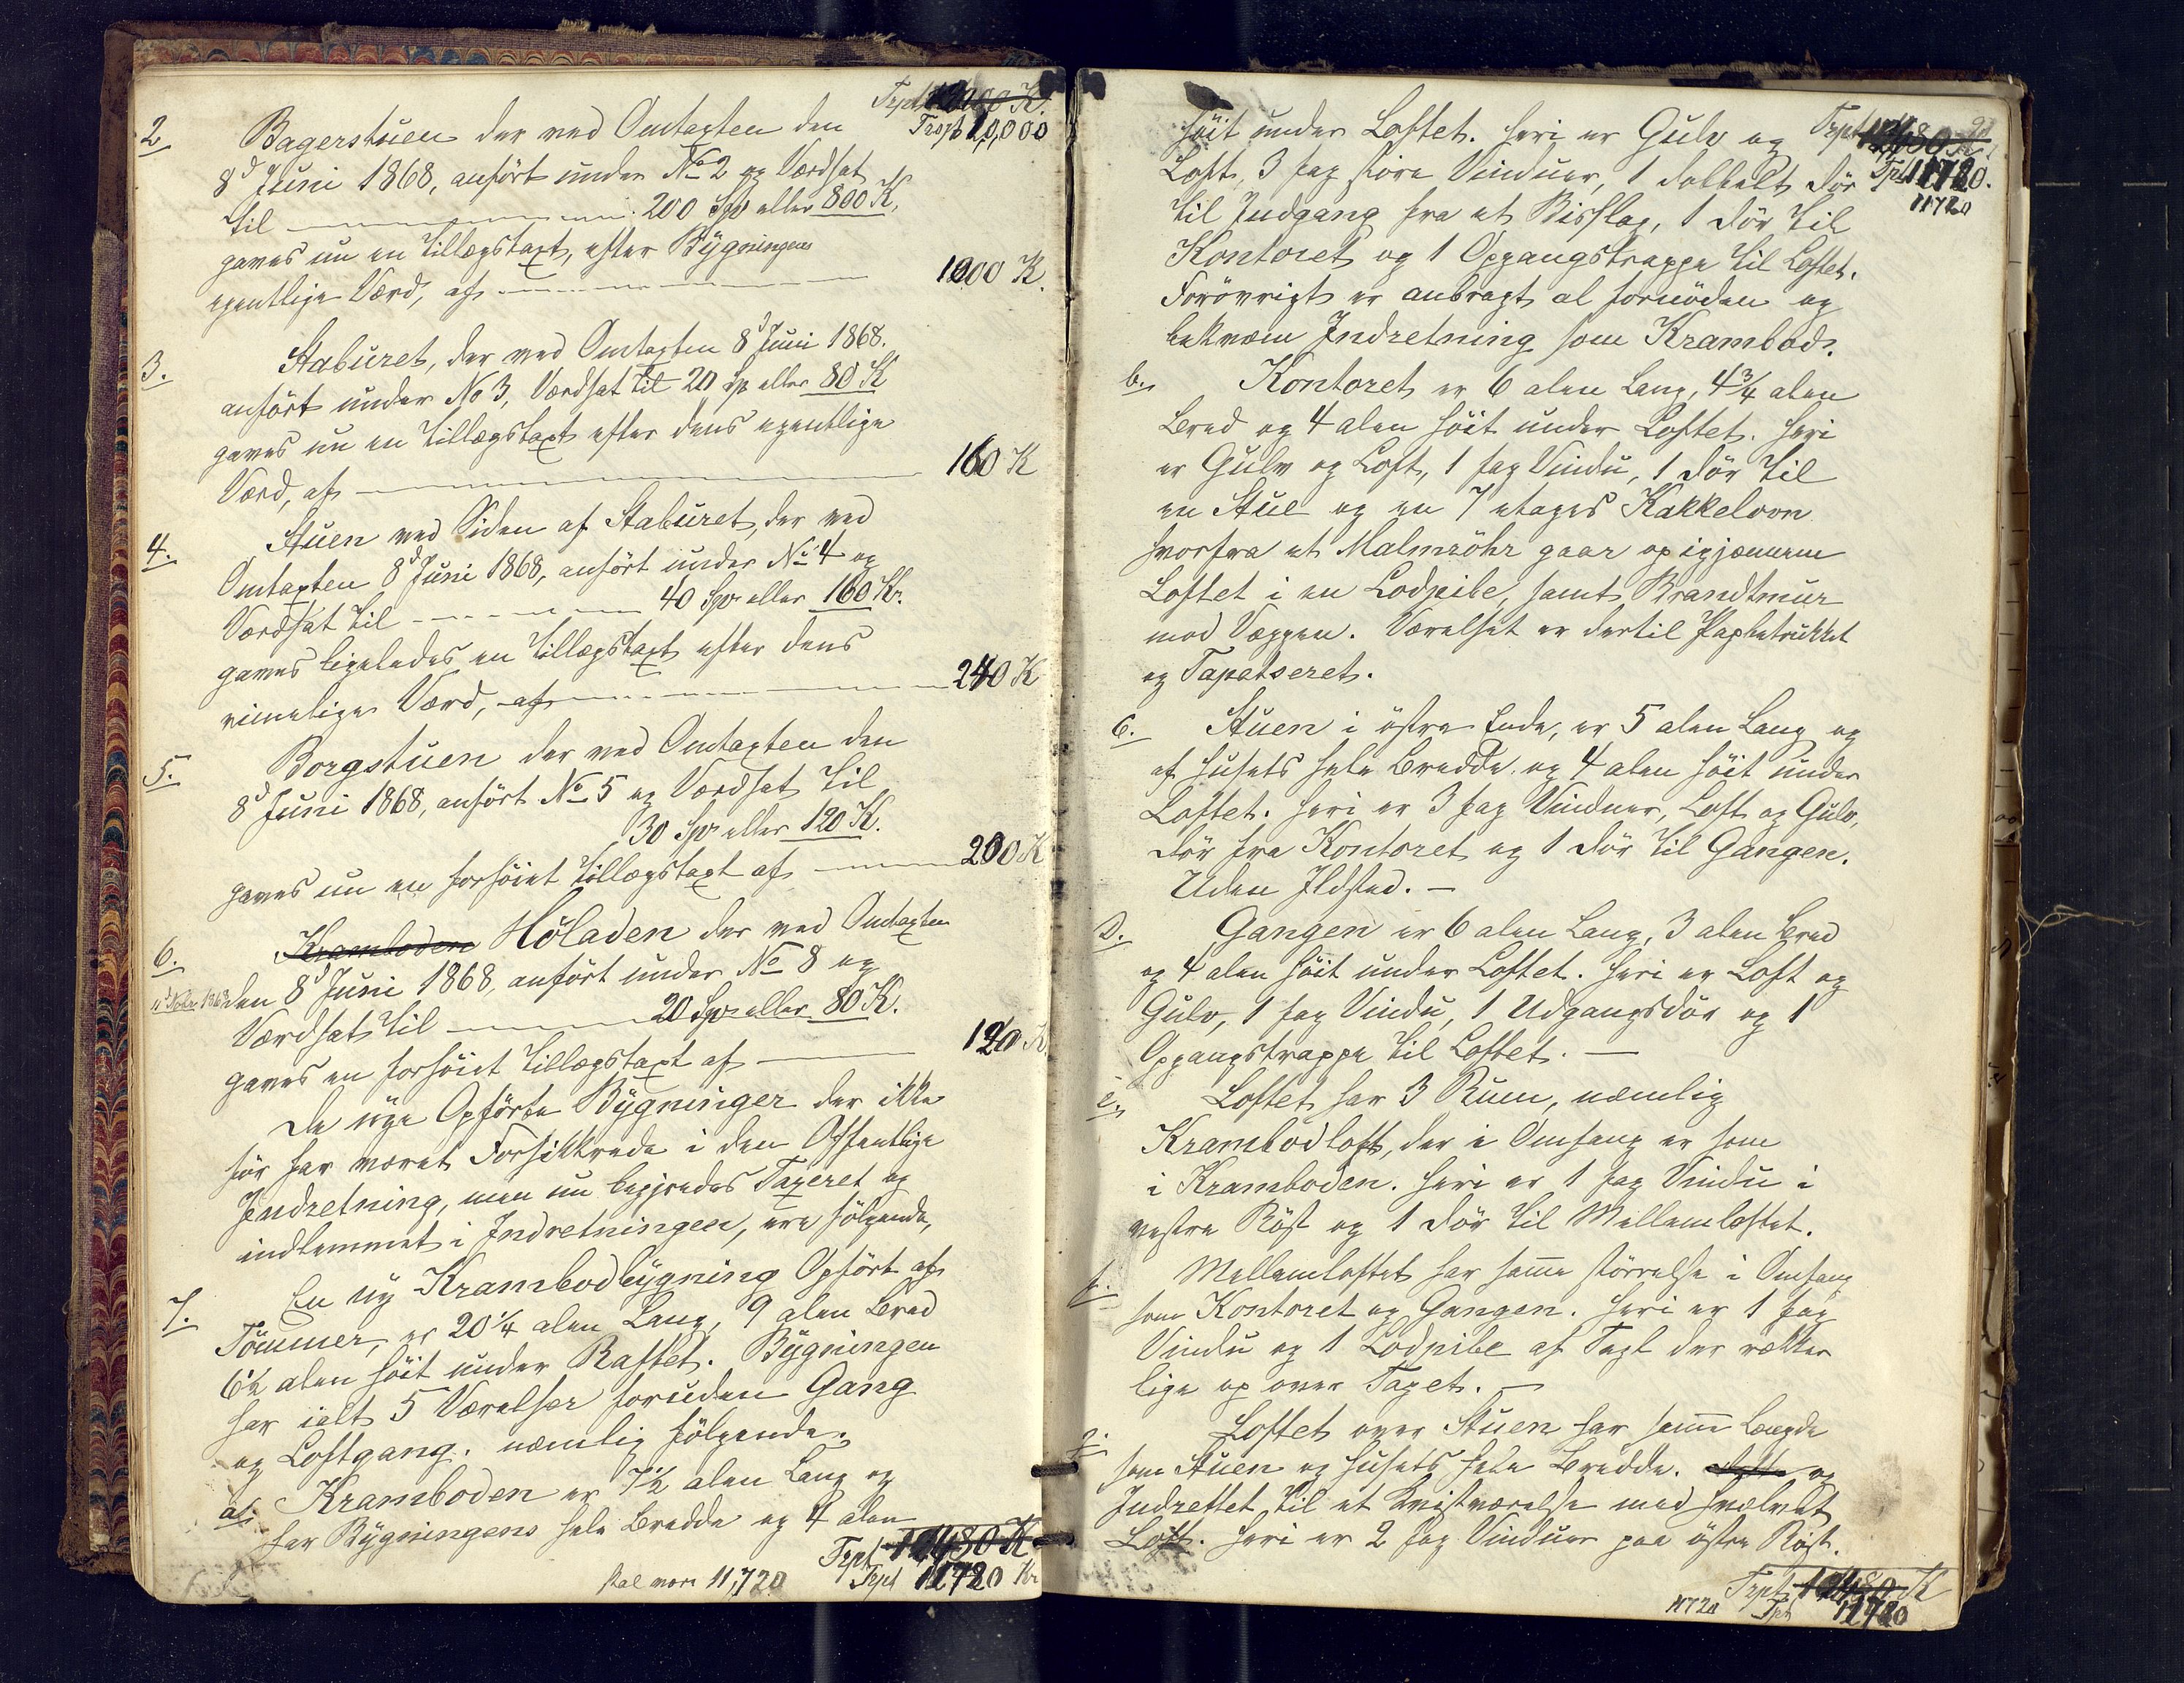 Trpt
Trspt 10,000
2 Bagerstuen der ved Omtaxten den
8d Juni 1868, anført under No 2 og Værdsat
til 200 Spd eller 800 K,
gaves nu en Tillægstaxt, efter Bÿgningens
egentlige Værd, af 1000 K.
3. Staburet, der ved Omtaxten 8d Juni 1868.
anført under No 3, Værdsat til 20 Sp eller 80 K
gaves nu en Tillægstaxt efter dens egentlige
Værd, af 160 K
4. Stuen ved Siden af Staburet, der ved
Omtaxten 8d Juni 1868, anført under No 4 og
Værdsat til 40 Spd eller 160 Kr.
gaves ligeledes en Tillægstaxt efter dens
rimelige Værd, af 240 K
5. Borgstuen der ved Omtaxten den
8d Juni 1868, anført No 5 og Værdsat til
30 Spd eller 120 K.
gaves nu en forhöiet Tillægstaxt af 200 K
6. Kramboden Höladen der ved Omtaxten
den 8d Juni 1868, anført under No 8 og
Værdsat til 20 Spd eller 80 K.
gaves en forhöiet Tillægstaxt af 120 K
De nÿe Opförte Bÿgninger der ikke
för har været Forsikkrede i den Offentlige
Indretning, men nu begjeredes Taxeret og
indlemmet i Indretningen, ere fölgende,
7. En nÿ Krambodbÿgning Opfört af
Tömmer, er 20 1/4 alen Lang, 9 alen Bred
6 1/2 alen höit under Raftet. Bÿgningen
har ialt 5 Værelser foruden Gang
og Loftgang. nemlig fölgende.
a. Kramboden er 7 1/2 alen Lang og
har Bÿgningens hele Bredde og 4 alen
Trpt 10480 K
skal være 11,720 Trpt 11720 Kr
höit under Loftet. heri er Gulv og
Trpt
Loft, 3 fag store Vinduer, 1 dobbelt Dör
Tpt 11720.
11720
til Indgang fra et Bislag, 1 Dör til
Kontoret og 1 Opgangstrappe til Loftet.
Forövrigt er anbragt al fornöden og
bekvæm Indretning som Krambod.
b. Kontoret er 6 alen Lang, 4 3/4 alen
Bred og 4 alen höit under Loftet. heri
er Gulv og Loft, 1 fag Vindu, 1 Dör til
en Stue og en 7 etages Kakkelovn
hvorfra et Malmröhr gaar op igjennem
Loftet i en Lodpibe, samt Brandtmur
mod Væggen. Værelset er dertil Papbetrukket
og Tapetseret.
c. Stuen i östre Ende, er 5 alen Lang og
af husets hele Bredde og 4 alen höit under
Loftet. heri er 3 fag Vinduer, Loft og Gulv,
Dör fra Kontoret og 1 Dör til Gangen.
Uden Ildsted. —
D. Gangen er 6 alen Lang, 3 alen Bred
og 4 alen höit under Loftet. heri er Loft og
Gulv, 1 fag Vindu, 1 Udgangsdör og 1
Opgangstrappe til Loftet. —
e. Loftet har 3 Rum, nemlig
Krambodloft, der i Omfang er som
i Kramboden. heri er 1 fag Vindu i
vestre Röst og 1 Dör til Mellemloftet.
f. Mellemloftet har samme störrelse i Omfang
som Kontoret og Gangen. heri er 1 fag
Vindu og 1 Lodpibe af Tegl der rækker
lige op over Taget. —
g. Loftet over Stuen har samme Længde
som Stuen og husets hele Bredde. og
Indrettet til et Kvistværelse med hvælvet
Loft. heri er 2 fag Vinduer paa östre Röst.
Trpt 10480 K
11720 Tpt 11720